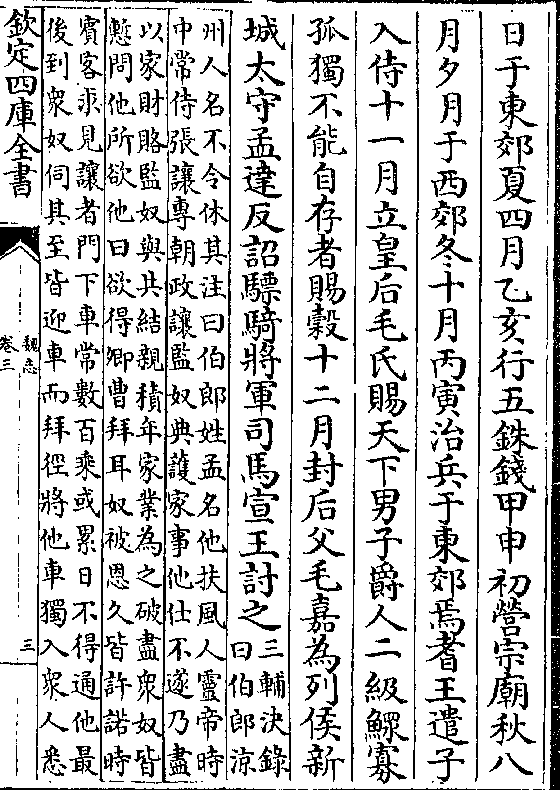 日于東郊夏四月乙亥行五銖錢甲申初營宗廟秋八
月夕月于西郊冬十月丙寅治兵于東郊焉耆王遣子
入侍十一月立皇后毛氏賜天下男子爵人二級鰥寡
孤獨不能自存者賜穀十二月封后父毛嘉為列侯新
城太守孟達反詔驃騎將軍司馬宣王討之
三輔決錄
曰伯郎涼
州人名不令休其注曰伯郎姓孟名他扶風人靈帝時
中常侍張讓專朝政讓監奴典護家事他仕不遂乃盡
以家財賂監奴與共結親積年家業為之破盡衆奴皆
慙問他所欲他曰欲得卿曹拜耳奴被恩久皆許諾時
賓客求見讓者門下車常數百乘或累日不得通他最
後到衆奴伺其至皆迎車而拜徑將他車獨入衆人悉
欽定四庫全書
魏志
卷三
三